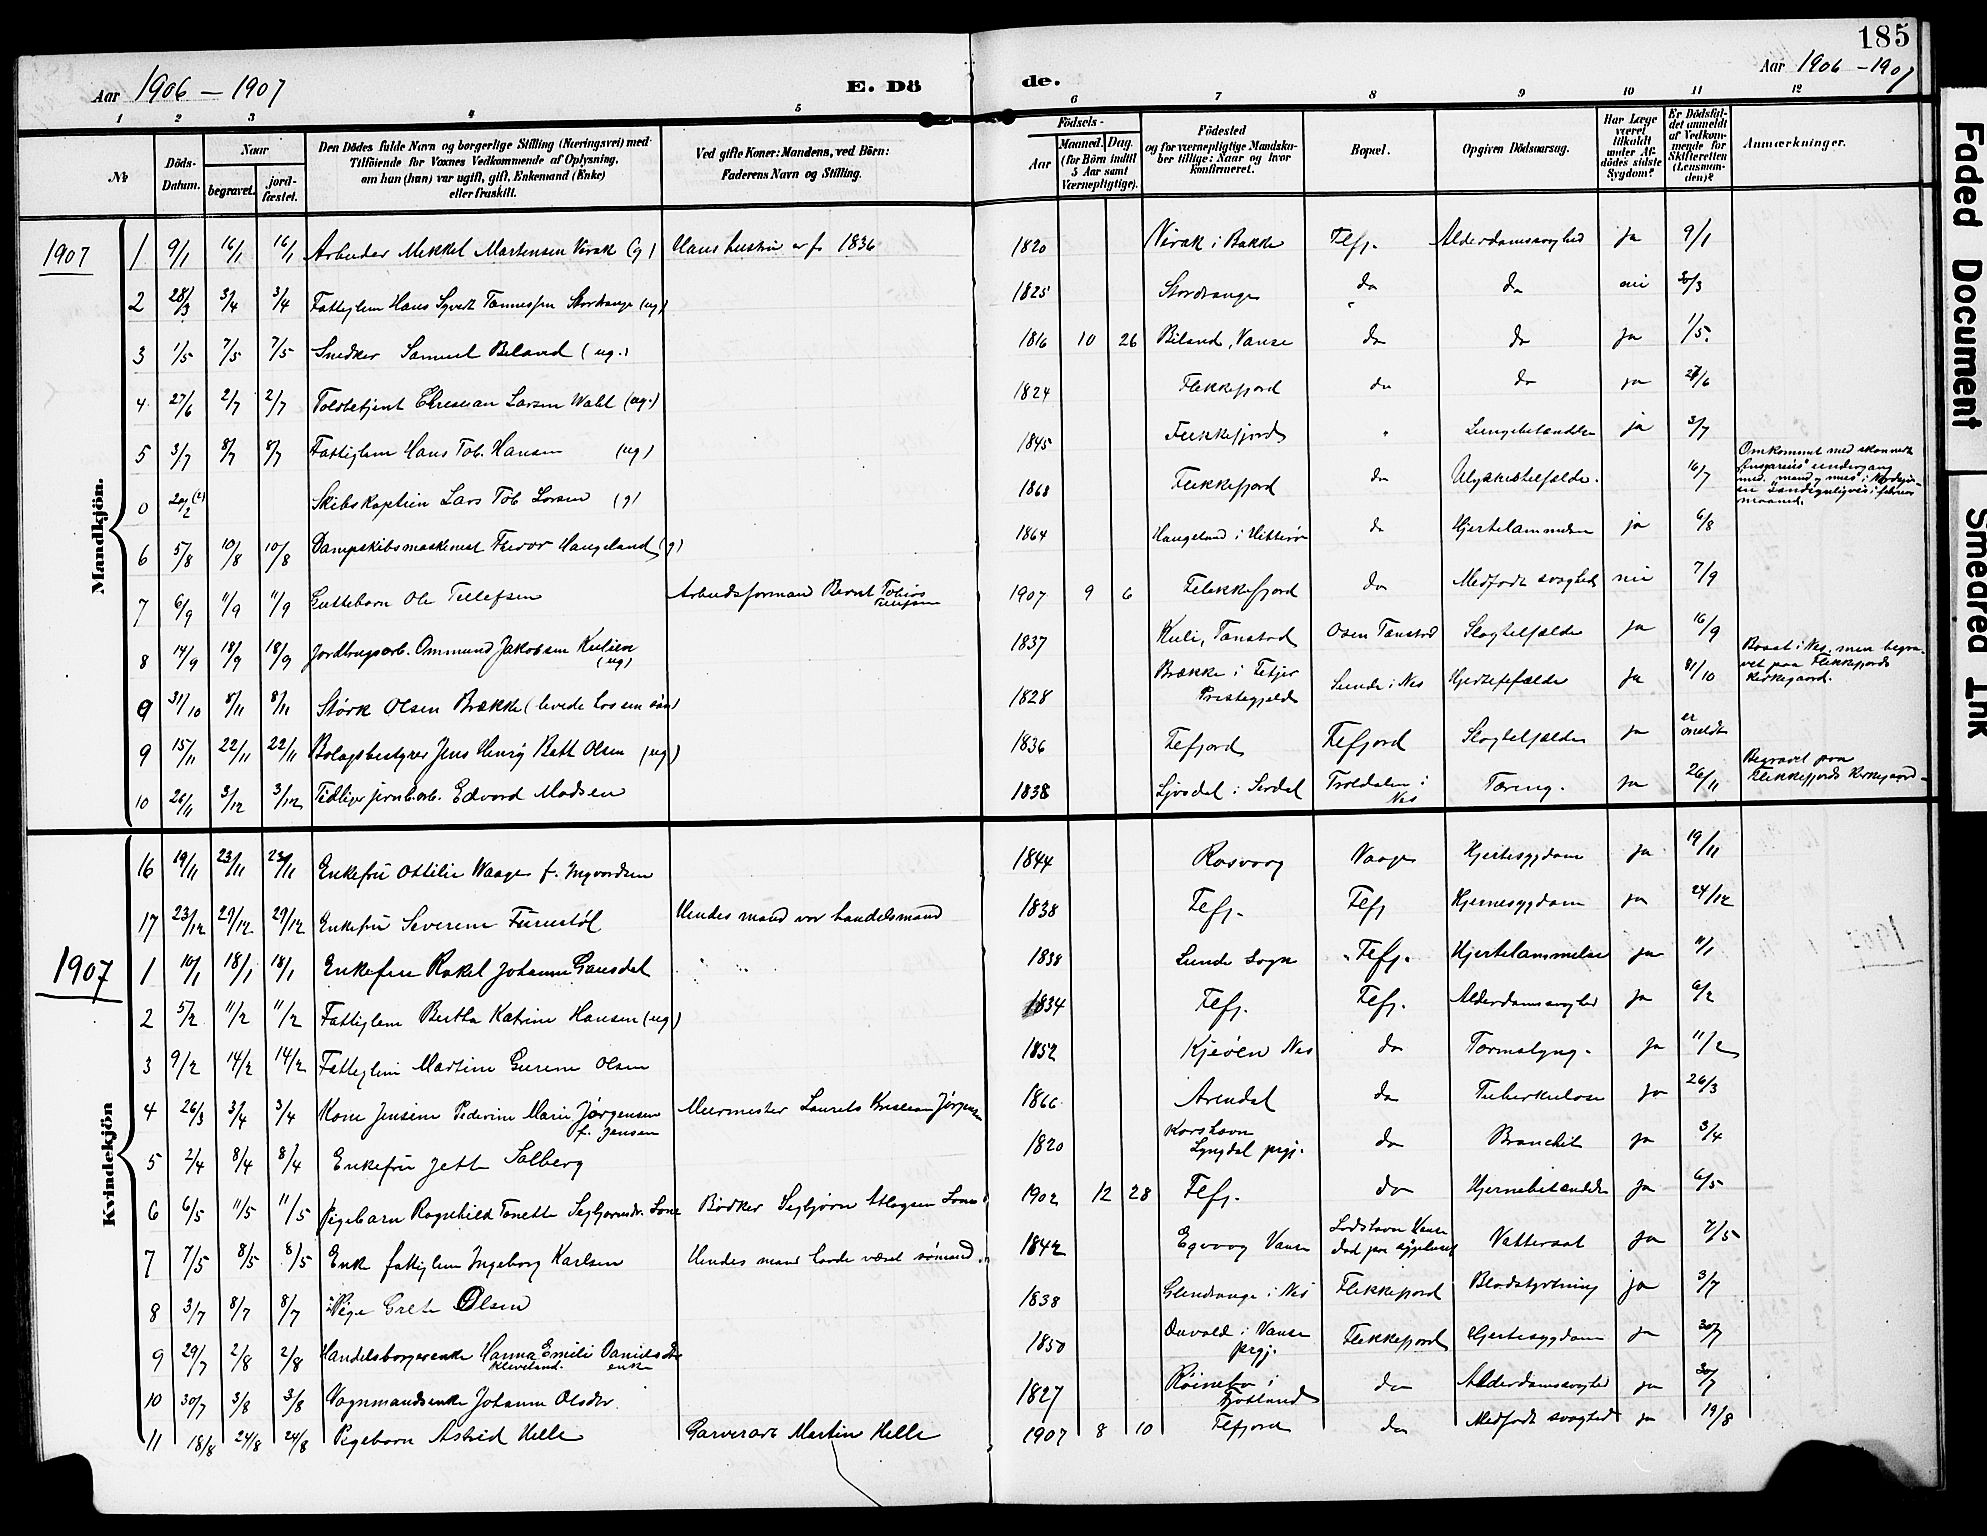 185
Aar 1906 – 1907
E. Dö de.
Aar 1906 – 1907
1 2 3 4 5 6 7 8 9 10 11 12
№
Döds-Datum.
Naar
begravet. jord-fæstet.
Den Dödes fulde Navn og borgerlige Stilling (Næringsvei) med
Tilföiende for Voxnes Vedkommende af Oplysning,
om han (hun) var ugift, gift, Enkemand (Enke)
eller fraskilt.
Ved gifte Koner: Mandens, ved Börn:
Faderens Navn og Stilling.
Födsels-
Aar Maaned. Dag.
(for Börn indtil
5 Aar samt
Værnepligtige).
Födested
og for værnepligtige Mandska-
ber tillige: Naar og hvor
konfirmeret.
Bopæl.
Opgiven Dödsaarsag.
Har Læge
været
tilkaldt
under Af-
dödes sidste
Sygdom?
Er Dödsfal-
det anmeldt
af Vedkom-
mende for
Skifteretten
(Lensman-
den)?
Anmærkninger.
Mandkjön.
1907 1 9/1 16/1 16/1 Arbeider Mekkel Martensen Virak (g) Hans hustru er f. 1836 1820 Virak i Bakke Flfj. Alderdomssvaghed ja 9/1
2 28/3 3/4 3/4 Fattiglem Hans Syvert Tønnessen Stordrange (ug) 1825 Stordrange do do nei 30/3
3 1/5 7/5 7/5 Snedker Samuel Biland (ug.) 1816 10 26 Biland, Vanse do do ja 1/5.
4 27/6 2/7 2/7 Toldbetjent Christian Larsen Wahl (ug.) 1824 Flekkefjord do do ja 27/6
5 3/7 8/7 8/7 Fattiglem Hans Tob. Hansen (ug) 1845 Flekkefjord " Lungebetændelse ja 3/7
0 20/2 (?) Skibskaptein Lars Tob Larsen (g) 1868 Flekkefjord do Ulykkestilfælde. 16/7 Omkommet med skonnert
undergang
med "mand og mus" i Nordsjø-
en sandsynligvis i februar
maaned.
6 5/8 10/8 10/8 Dampskibsmaskinist Haugeland (g) 1864 Haugeland i Hitterø do Hjertelammelse ja 6/8
7 6/9 11/9 11/9 Guttebarn Ole Tellefsen Arbeidsformand Bernt Tobias
Tellefsen 1907 9 6 Flekkefjord do Medfødt svaghed nei 7/9
8 14/9 18/9 18/9 Jordbrugsarb. Ommund Jakobsen Kulien
(ug) 1837 Kuli, Tonstad Osen Tonstad Slagtilfælde ja 16/9
9 31/10 8/11 8/11 Størk Olsen Brække (levede hos sin søn) 1828 Brække i Fitjer
Prestegjeld Sunde i Nes Hjertefælde ja 31/10 Bosat i Nes, men begra-
vet paa Flekkefjords
kirkegaard.
9 15/11 22/11 22/11 Bolagsbestyrer Jens Henrij Bett Olsen (ug) 1836 Flfjord Flfjord Slagtilfælde ja er
meldt
10 26/11 3/12 3/12 Tidliger jernb.arb. Edvard Madsen 1838 Ljosdal i Sirdal Troldalen i
Nes Tæring. ja 26/11 Begravet paa
Flekkefjords Kirkegaard.
Kvindekjön
16 19/11 23/11 23/11 Enkefru Ottilie Waage f. Ingvardsen 1844 Rasvaag Vaage Hjertesygdom ja 19/11
17 23/12 29/12 29/12 Enkefru Severine Furustøl Hendes mand var handelsmand 1838 Flfj. Flfj Hjernesygdom ja 24/12
1907 1 10/1 18/1 18/1 Enkefru Rakel Johanne Gausdal " " 1838 Lunde Sogn Flfj. Hjertelammelse ja 11/1
2 5/2 11/2 11/2 Fattiglem Bertha Katrine Hansen (ug) 1834 Flfj. Flfj. Alderdomssvaghed ja 6/2
3 9/2 14/2 14/2 Fattiglem Martine Gurine Olsen 1852 Kjeøen Nes do Tarmslyng. ja 11/2
4 26/3 3/4 3/4 Kone Jensine Pederine Marie Jørgensen
f. Jensen Murmester Laurits Kristian Jørgensen 1866 Arendal do Tuberkulose ja 26/3
5 2/4 8/4 8/4 Enkefru Jette Salberg 1820 Korshavn
Lyngdal prgj. do Bronchit ja 3/4
6 6/5 11/5 11/5 Pigebarn Ragnhild Tonette Segbjørnsdr. Lone Bødker Segbjørn Atlagsen Lone 1902 12 28 Flfj. do Hjernebetændelse ja 6/5
7 7/5 8/5 8/5 Enk fattiglem Ingeborg Karlsen Hendes mand havde været sømand 1842 Egvaag Vanse Lodshavn Vanse
død paa sygehuset Vattersot ja 7/5
8 3/7 8/7 8/7 Pige Grete Olsen 1838 Glendrange i Nes Flekkefjord Blodstyrtning ja 3/7
9 29/7 2/8 2/8 Handelsborgerenke Hanna Emilie Danielsdtr
Kleveland. enke 1850 Duvold i Vanse
prgj. Flekkefjord Hjertesygdom ja 30/7
10 30/7 3/8 3/8 Vognmandsenke Johanne Olsdtr. 1827 Røinebø i
Fjotland do Alderdomssvaghed ja 30/7
11 18/8 24/8 24/8 Pigebarn Astrid Helle Garverarb. Martin Helle 1907 8 10 Flfjord do Medfødt svaghed ja 19/8
Faded Document
Smeared Ink